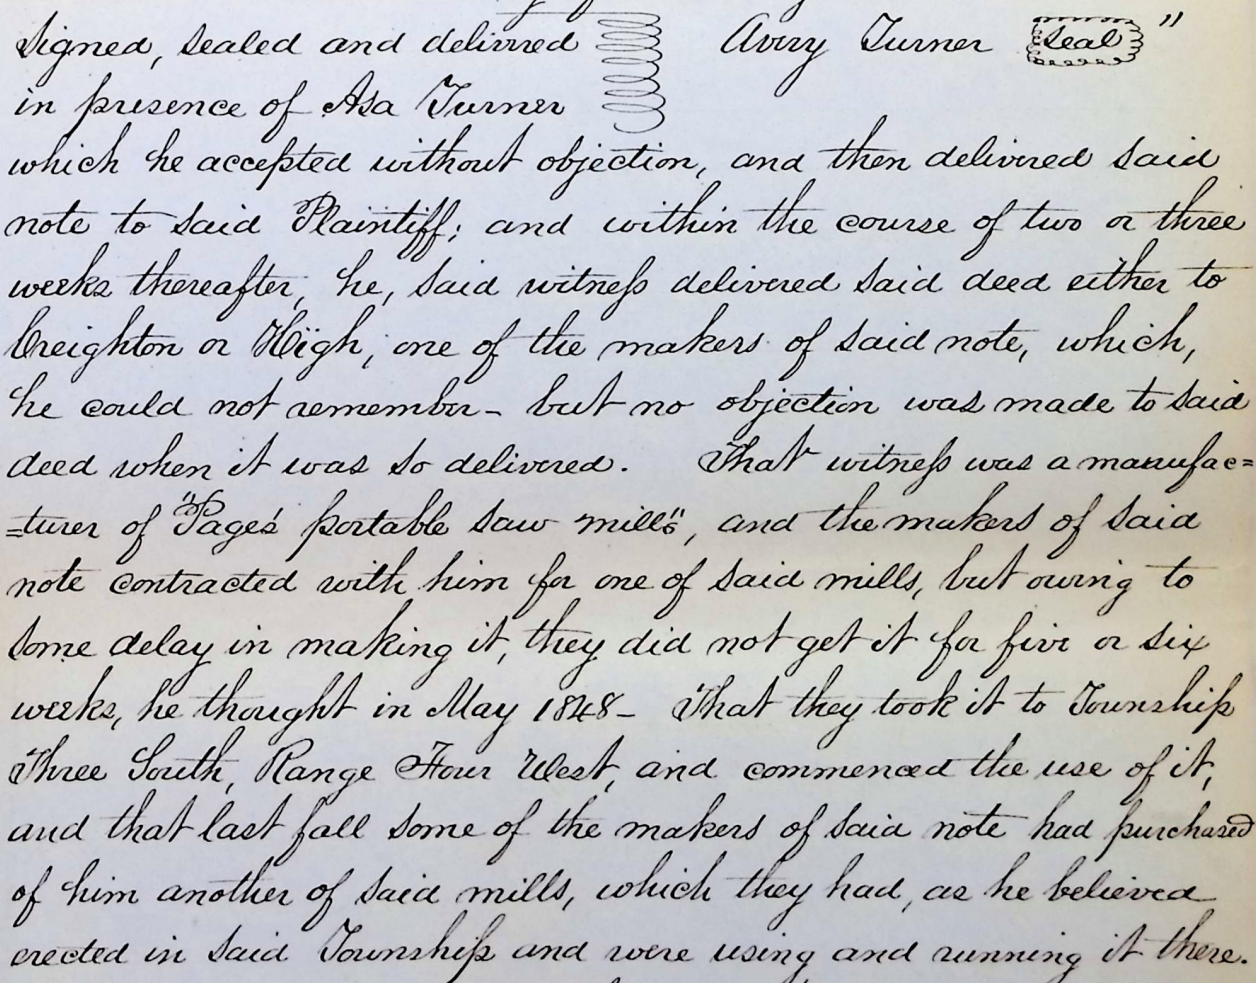 Signed, sealed and delivered Avery Turner Seal"
in presence of Asa Turner
which he accepted without objection, and then delivered said
note to said Plaintiff; and within the course of two or three
weeks thereafter, he, said witness delivered said deed either to
Creighton or High, one of the makers of said note, which,
he could not remember - but no objection was made to said
deed when it was so delivered. That witness was a manufac=
=turer of "Page's portable saw mills", and the makers of said
note contracted with him for one of said mills, but owing to
some delay in making it, they did not get it for five or six
weeks, he thought in May 1848 - That they took it to Township
Three South, Range Four West, and commenced the use of it,
and that last fall some of the makers of said note had purchased
of him another of said mills, which they had, as he believed
erected in said Township and were using and running it there.